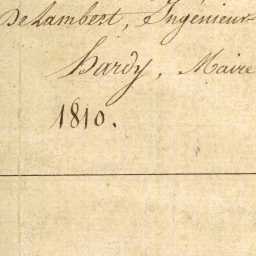 DeLambert, Ingénieur
Hardy, Maire
1810.